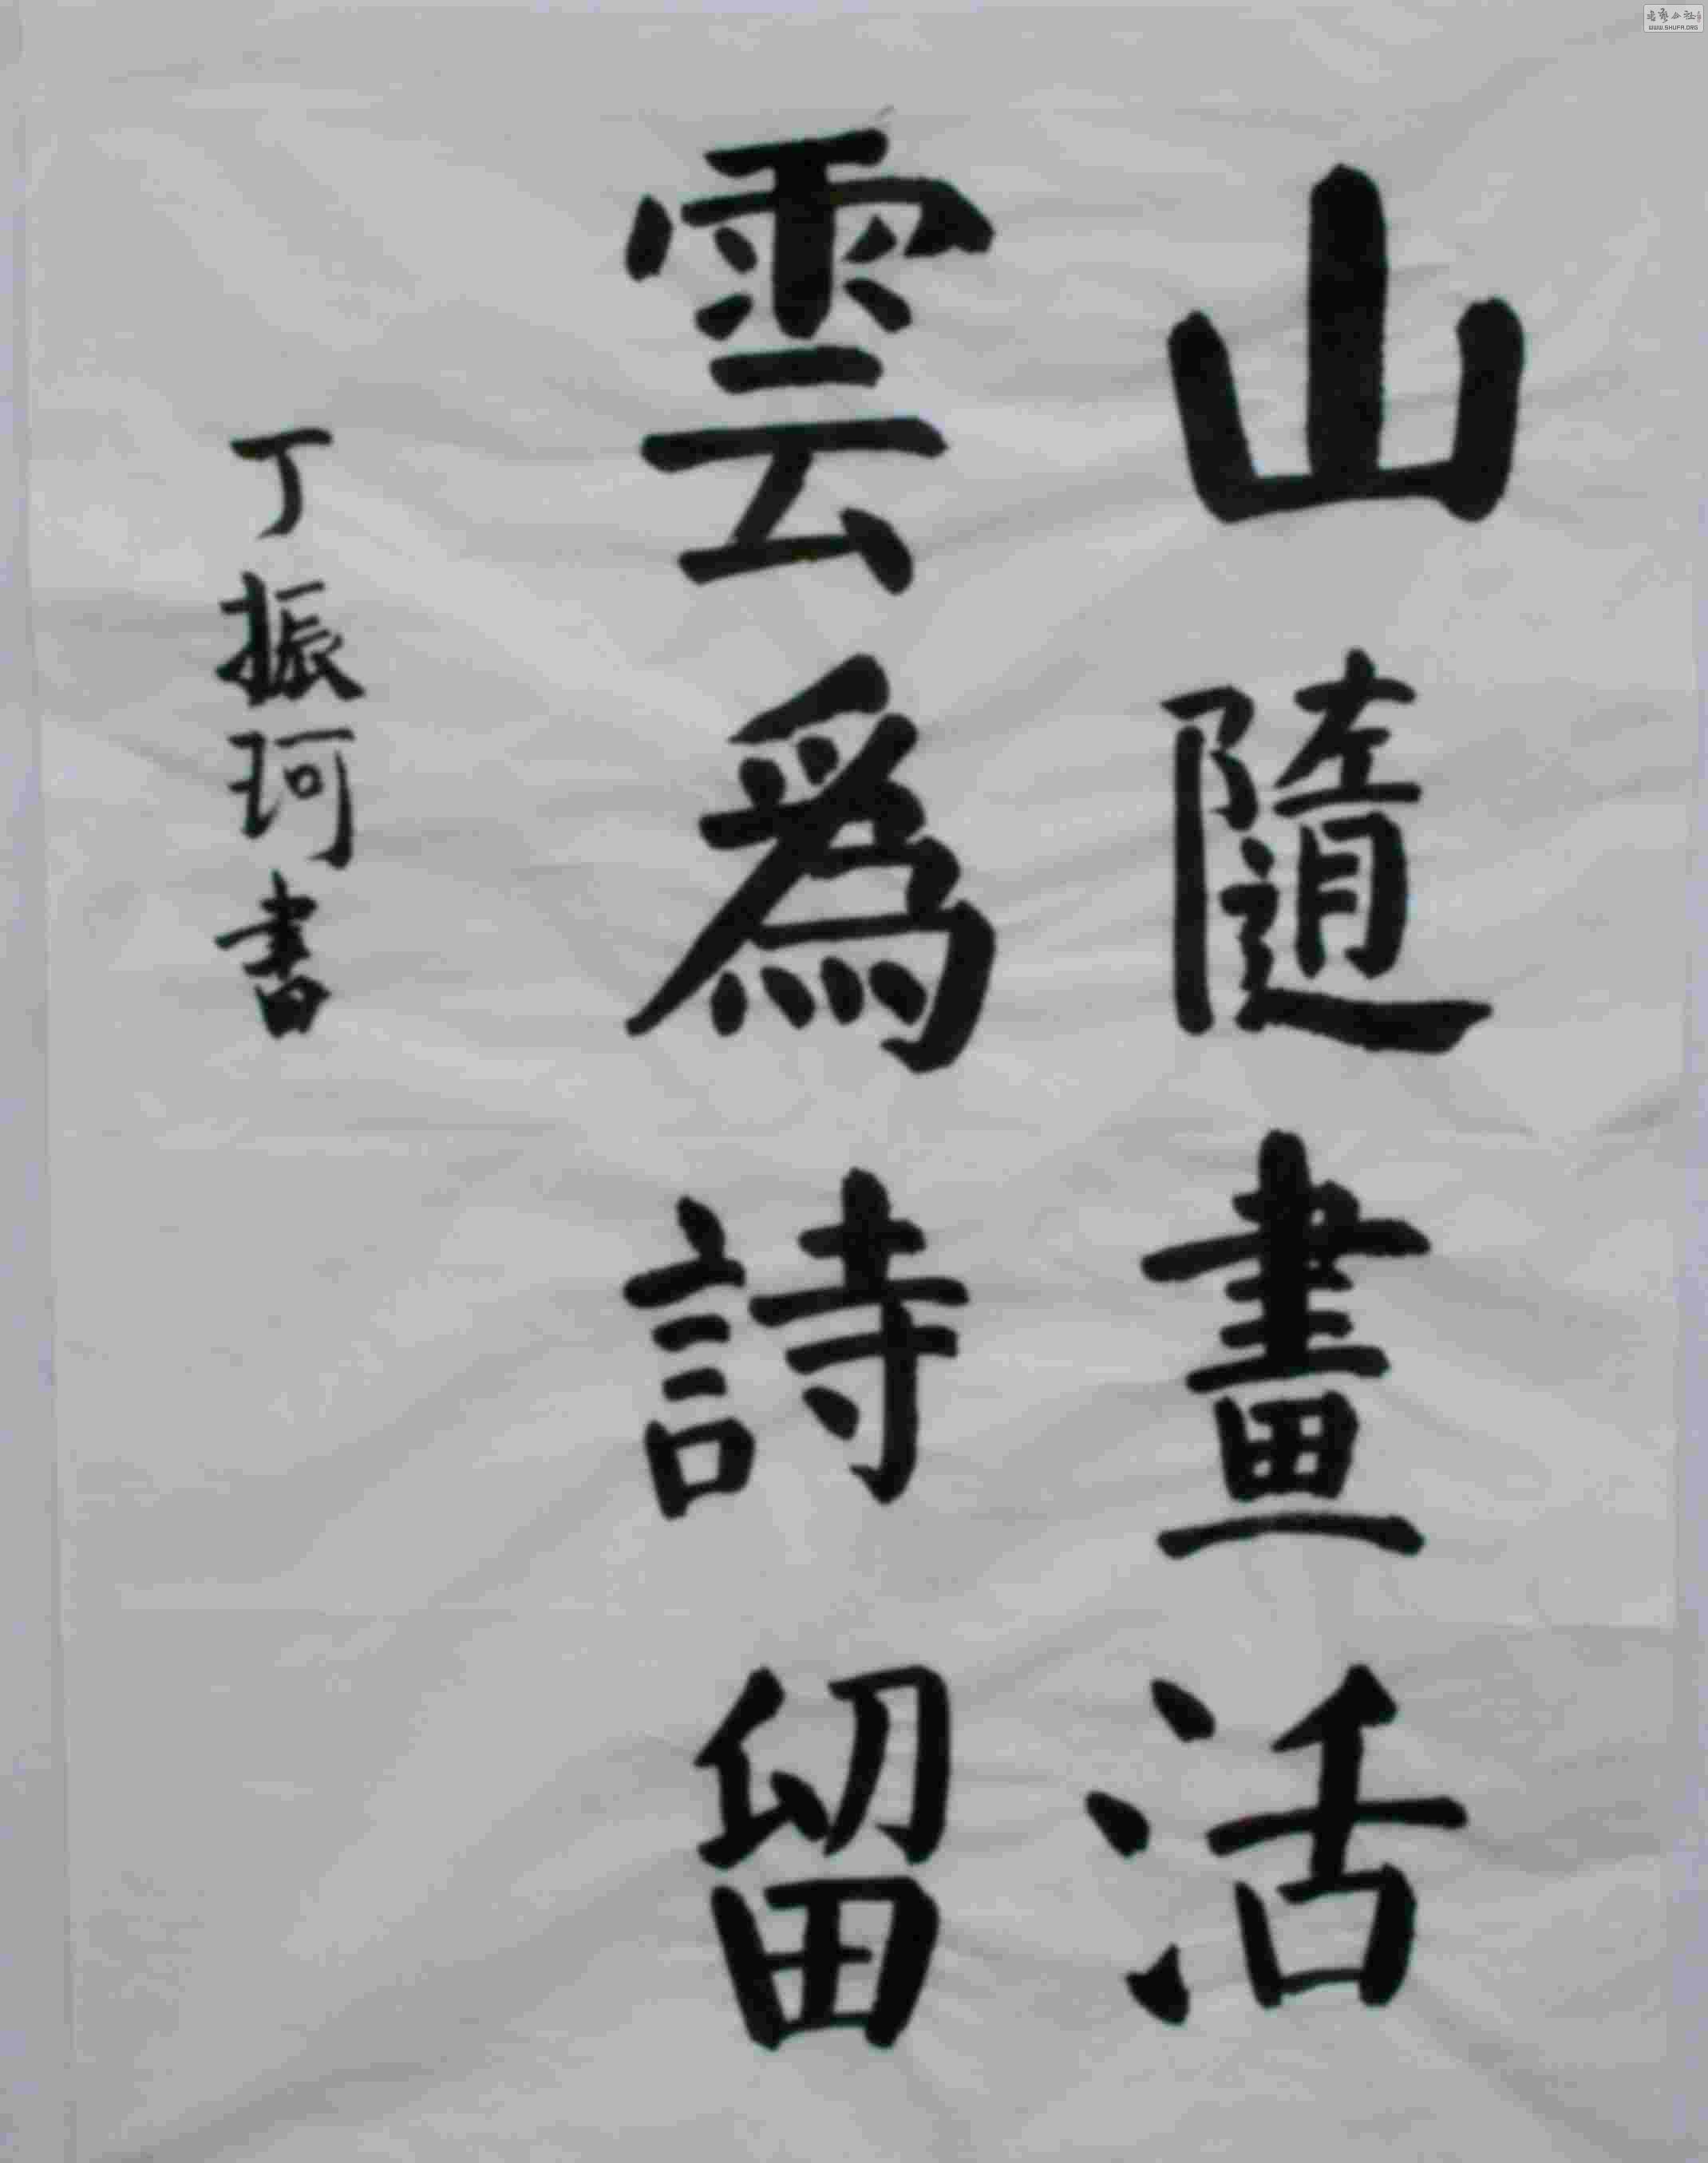 山隨畫活
雲爲詩留
丁振珂書
WWW.SHUFA.ORG